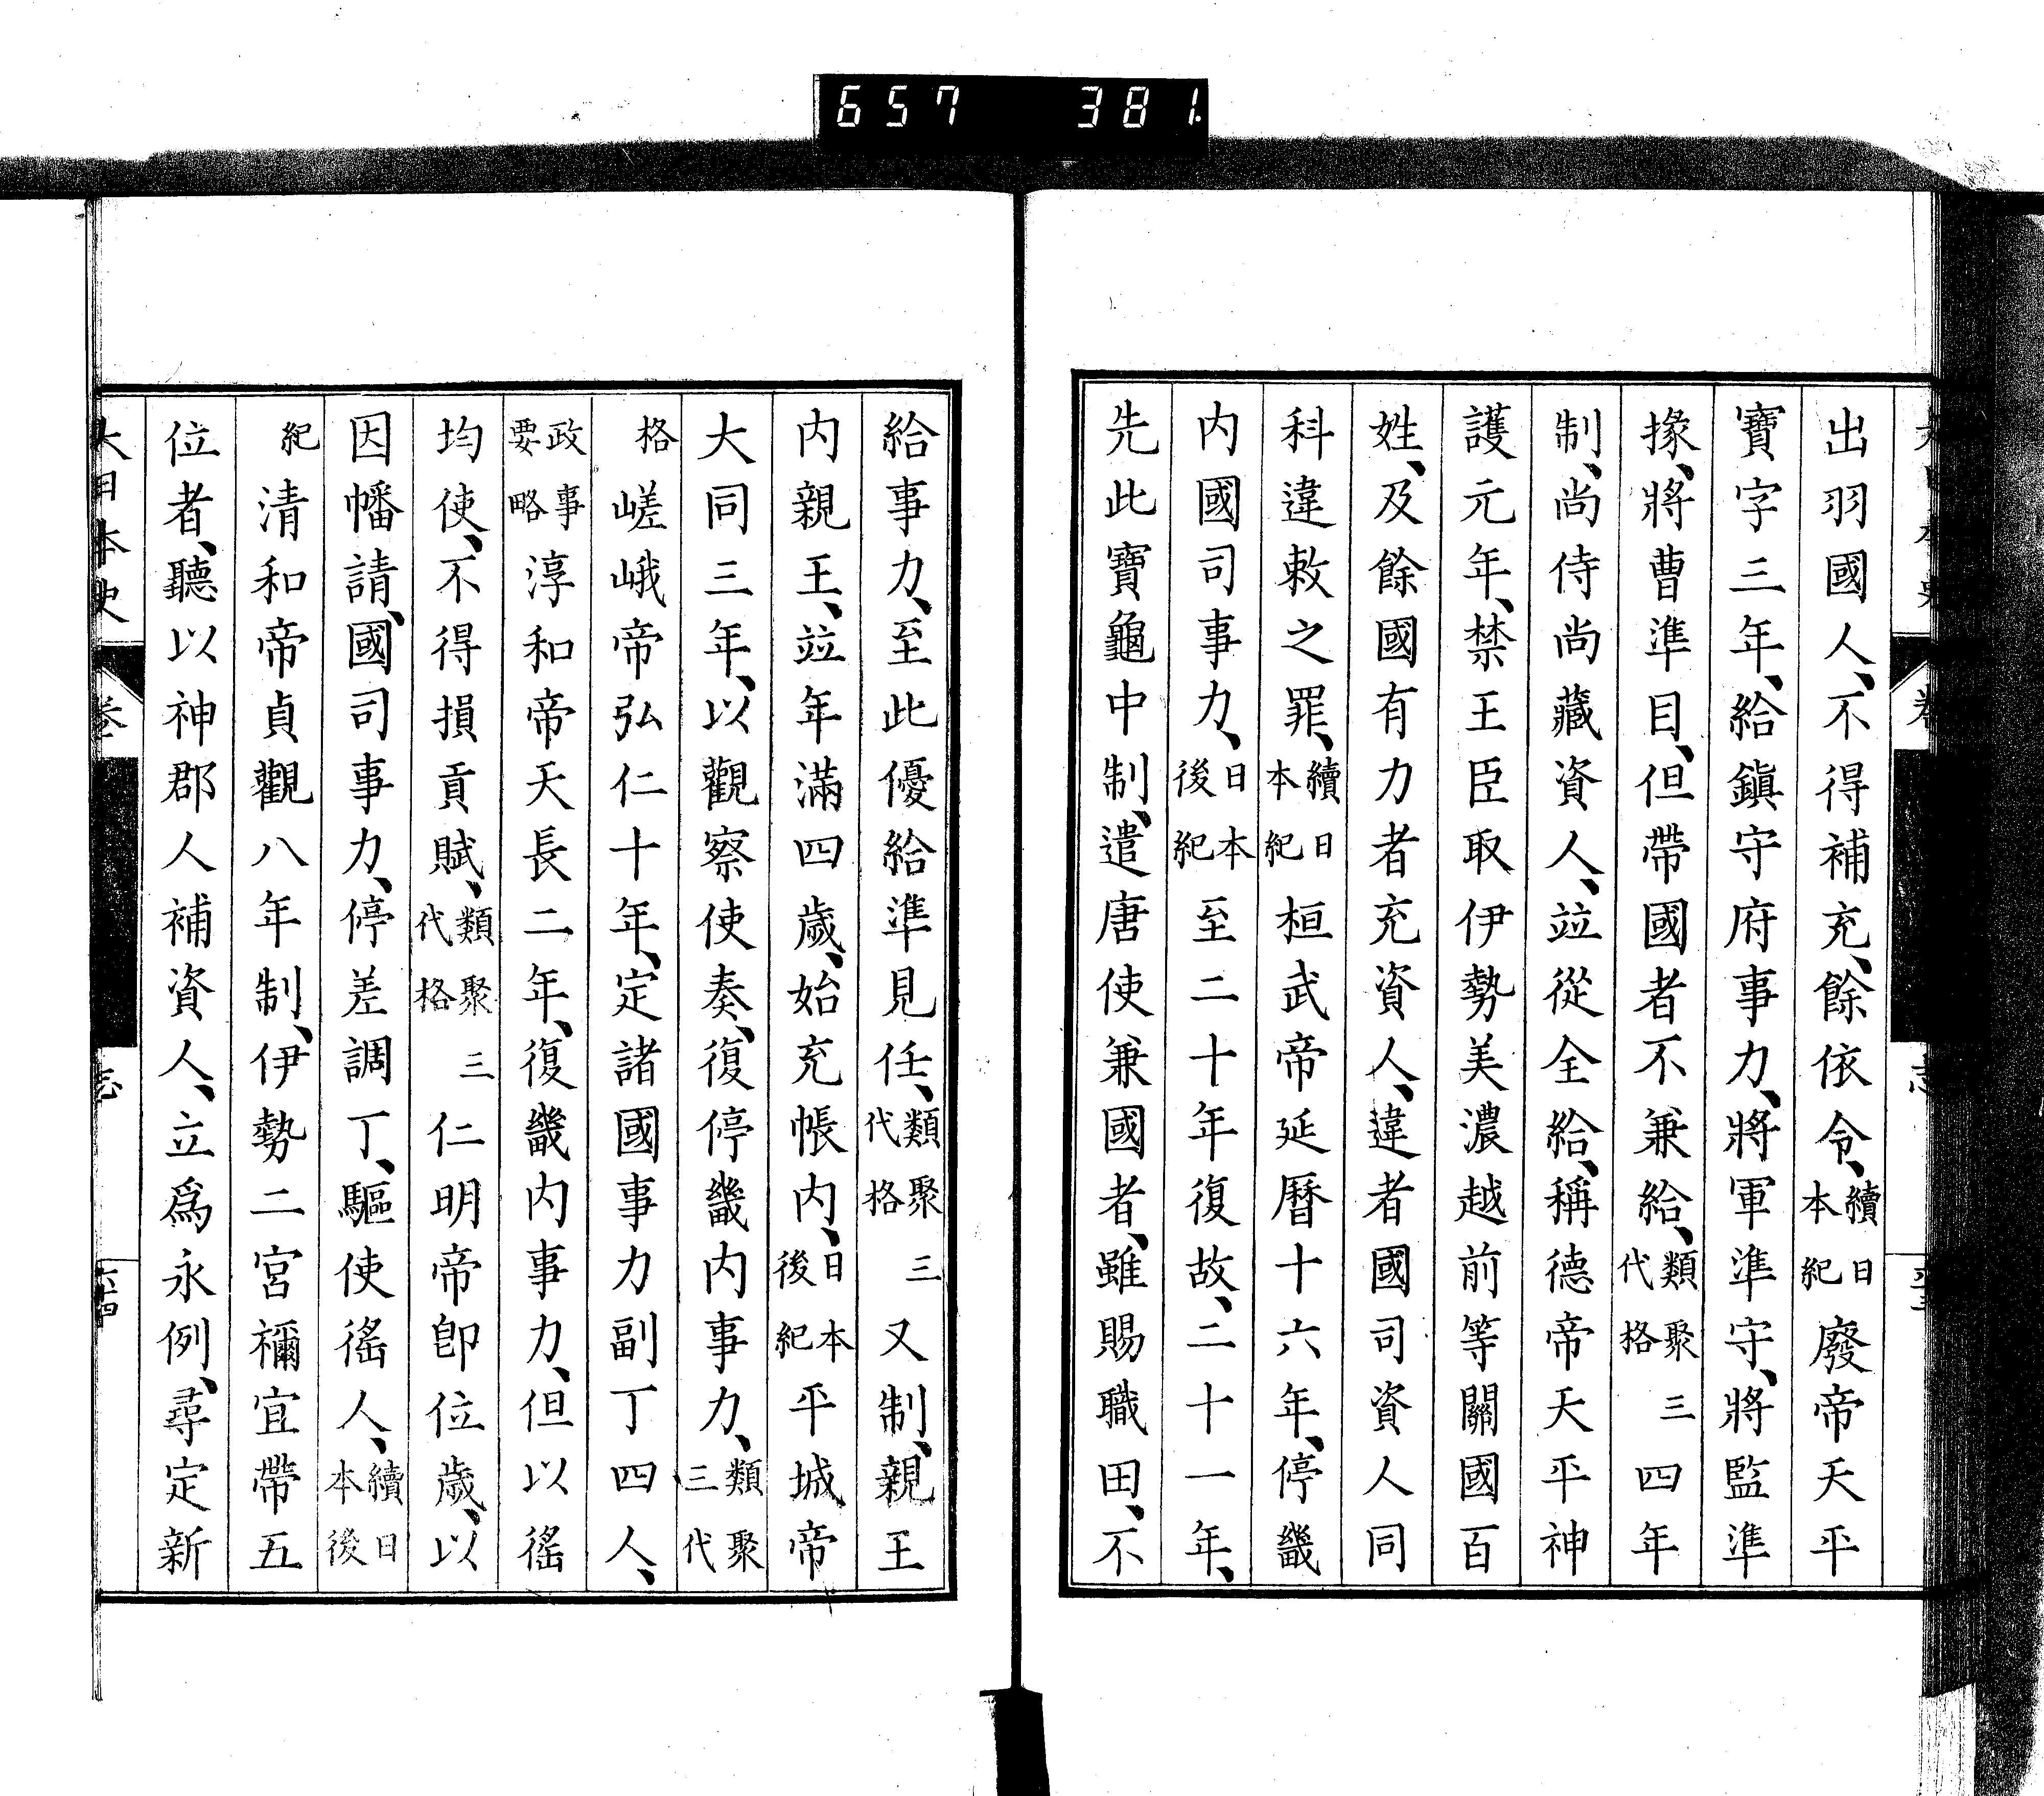 657 381
出羽國人、不得補充、餘依令、續日本紀廢帝天平
寶字三年、給鎭守府事力、將軍準守、將監準
掾、將曹準目、但帶國者不兼給、類聚三代格四年
制、尚侍尚藏資人、竝從全給、稱德帝天平神
護元年、禁王臣取伊勢美濃越前等關國百
姓、及餘國有力者充資人、違者國司資人同
科違敕之罪、續日本紀桓武帝延曆十六年、停畿
内國司事力、日本後紀至二十年復故、二十一年、
先此寶龜中制、遣唐使兼國者、雖賜職田、不
給事力、至此優給準見任、類聚三代格又制、親王
内親王、竝年滿四歲、始充帳内、日本後紀平城帝
大同三年、以觀察使奏、復停畿内事力、類聚三代
格嵯峨帝弘仁十年、定諸國事力副丁四人、
政事要略淳和帝天長二年、復畿内事力、但以徭
均使、不得損貢賦、類聚三代格仁明帝卽位歲、以
因幡請、國司事力、停差調丁、驅使徭人、續日本後
紀清和帝貞觀八年制、伊勢二宮禰宜帶五
位者、聽以神郡人補資人、立爲永例、尋定新
大日本史 卷 志